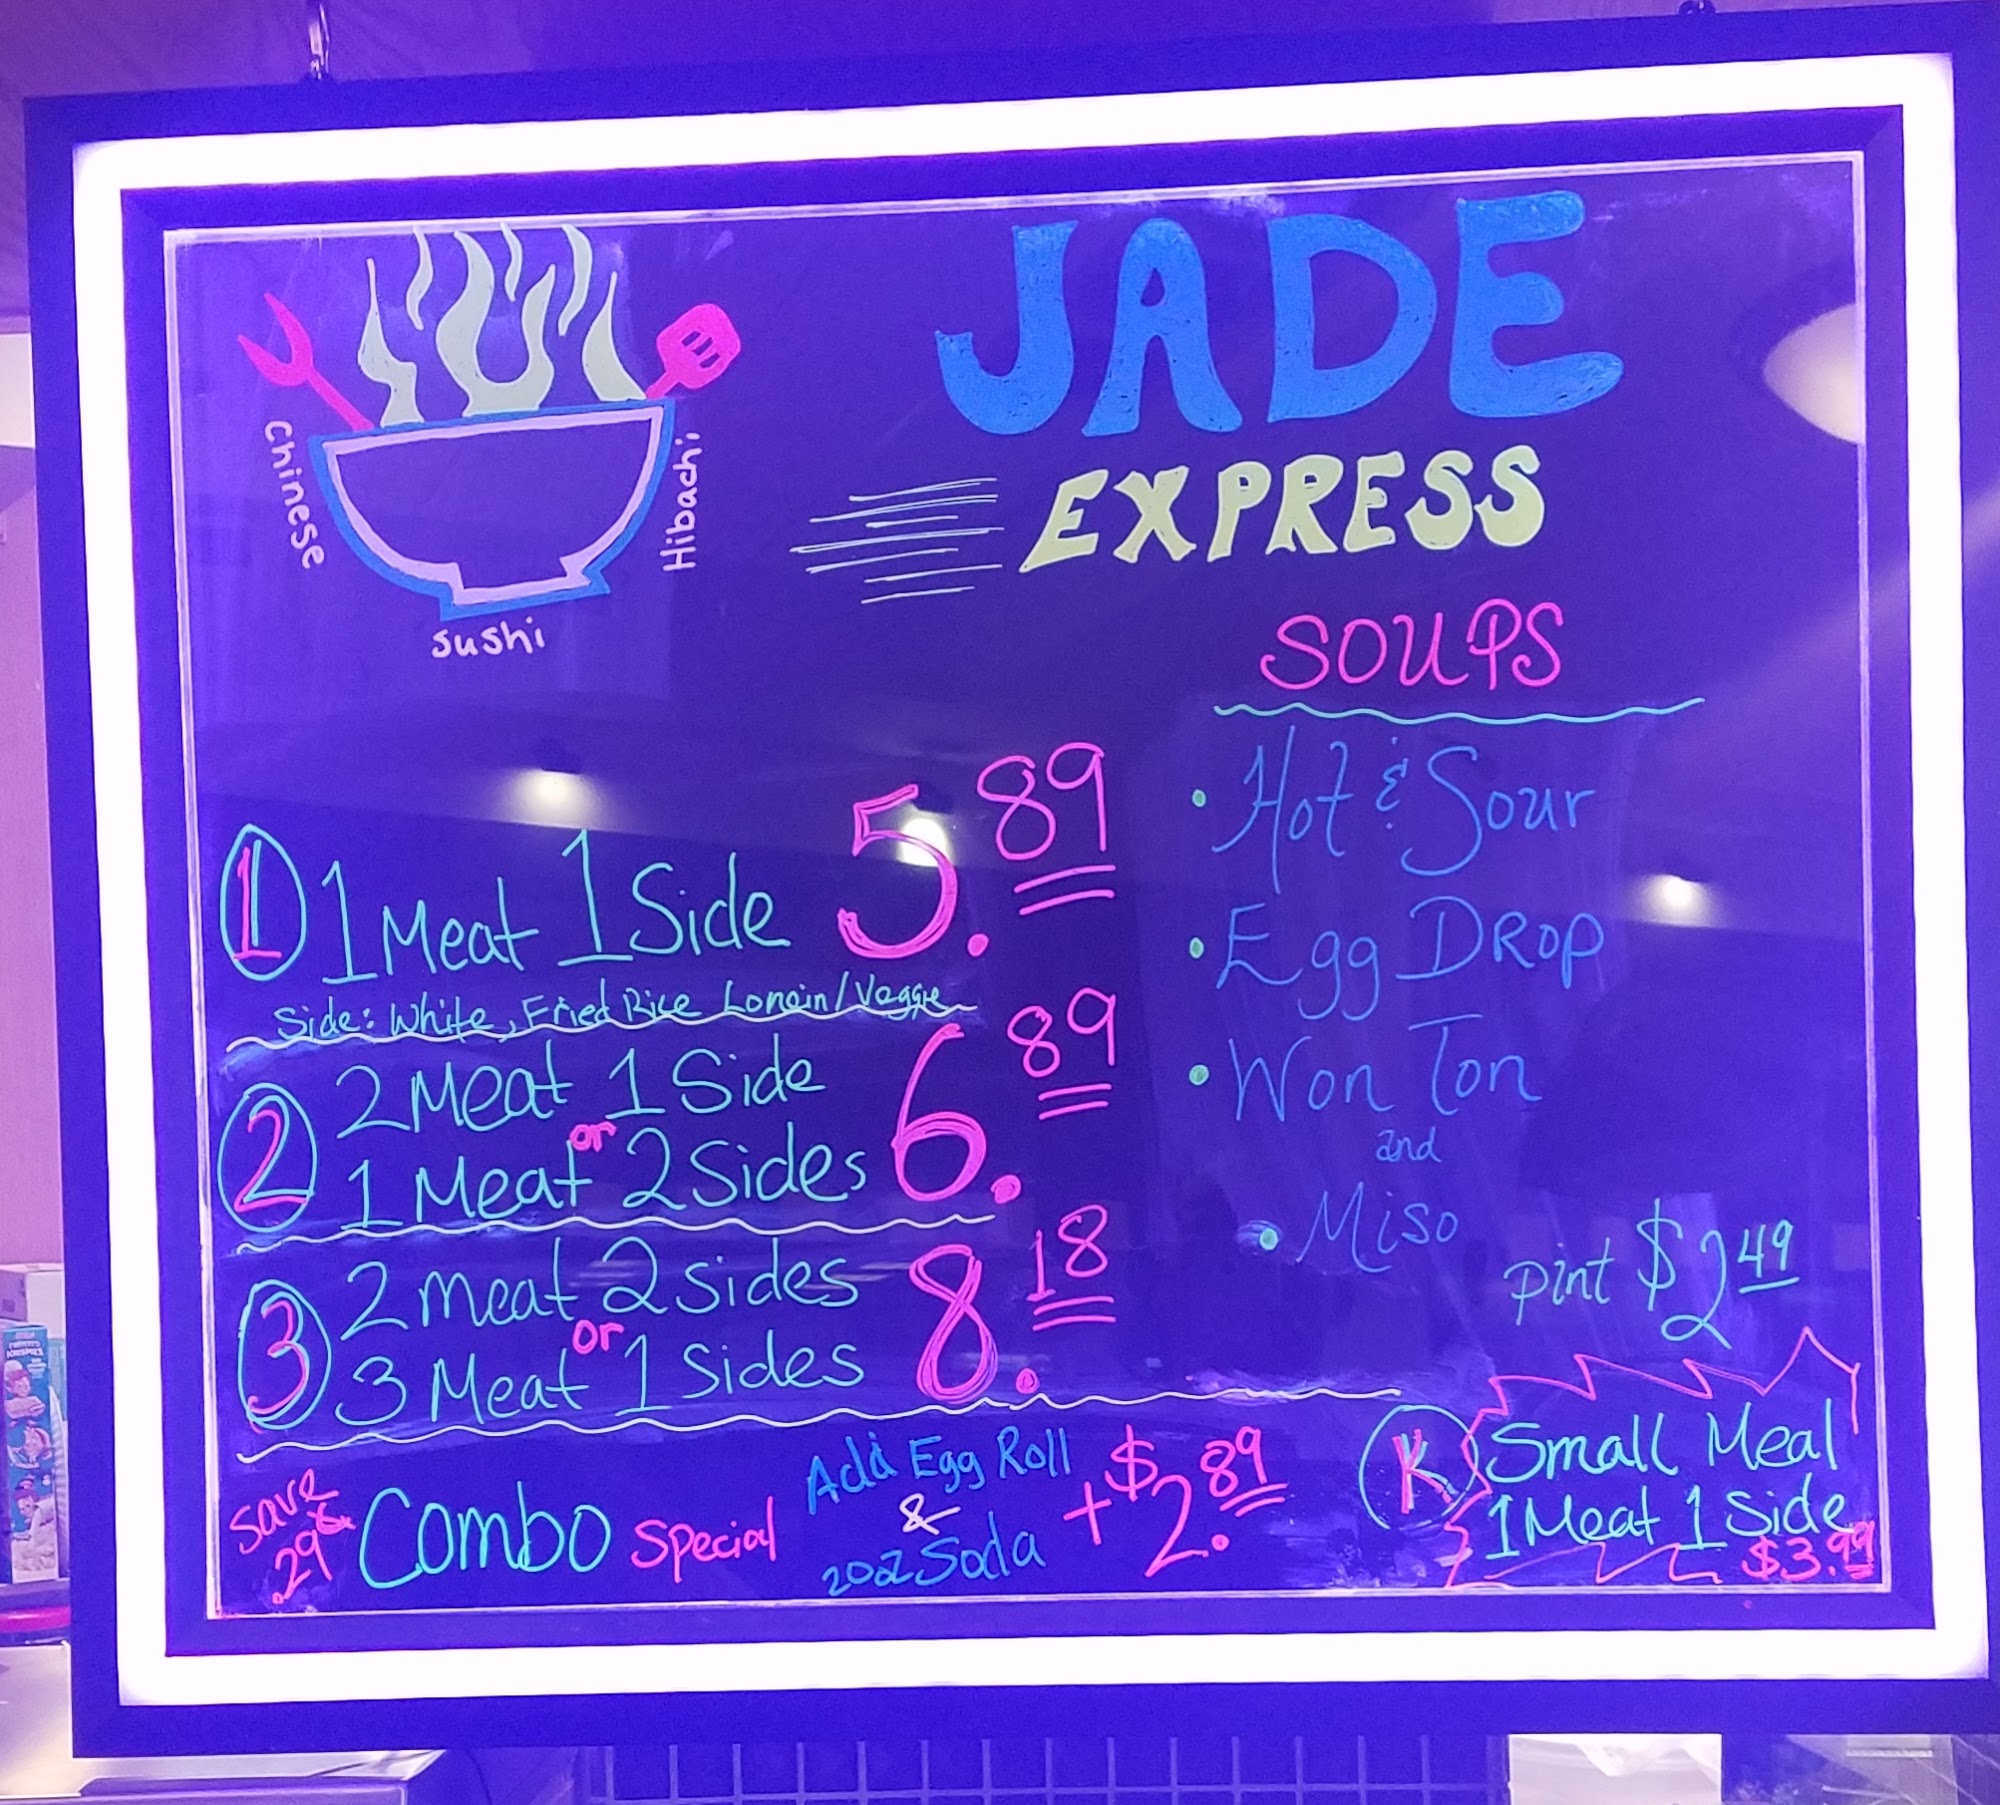 JADE
EXPRESS
Chinese
Hibachi
Sushi
SOUPS
• Hot & Sour
• Egg DROP
• Won Ton
and
• Miso
pint $2.49
1 1 Meat 1 Side 5.89
Side: White, Fried Rice Lomein/Veggie
2 2 Meat 1 Side 6.89
or
1 Meat 2 Sides
3 2 meat 2 sides 8.18
or
3 Meat 1 sides
Save
.29¢
Combo Special
Add Egg Roll
&
20oz Soda
+$2.89
K Small Meal
1 Meat 1 Side
$3.99